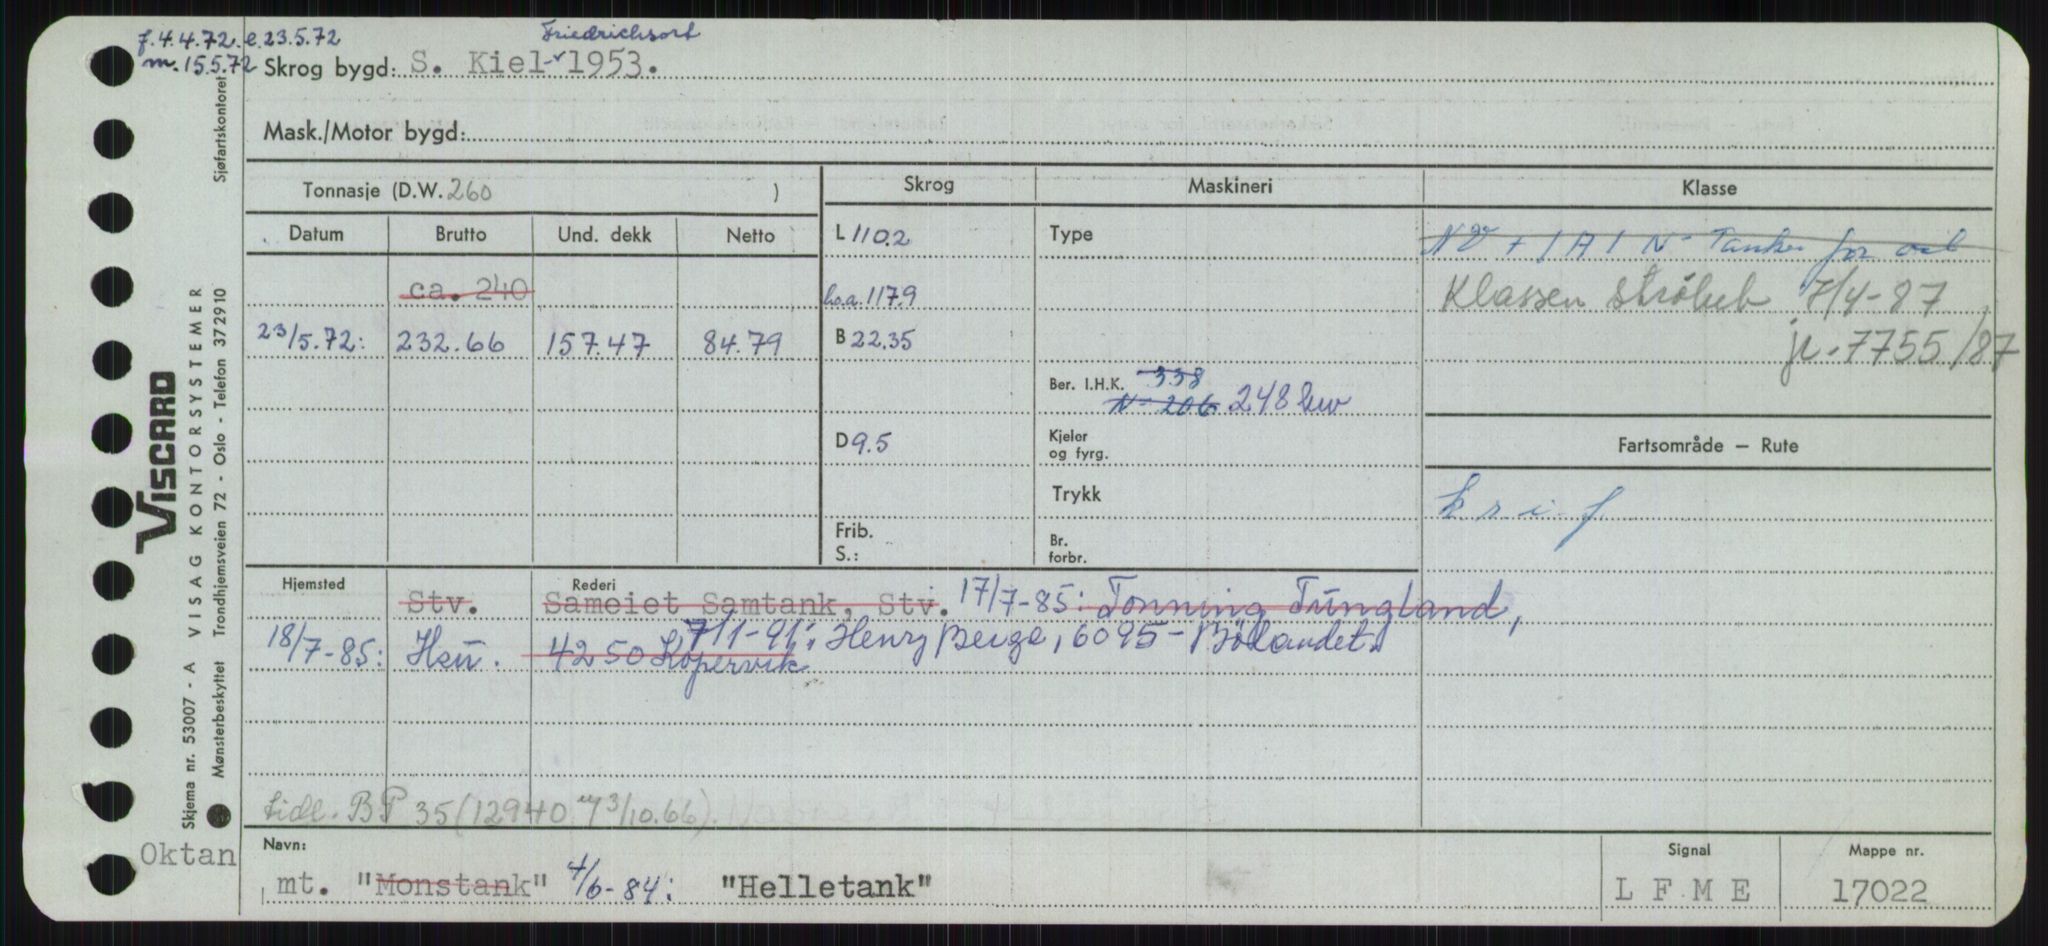 f. 4.4.72. e. 23.5.72
m. 15.5.72
Friedrichsort
Skrog bygd: S. Kiel 1953.
Mask./Motor bygd:
Tonnasje (D.W. 260 )
Skrog
Maskineri
Klasse
Datum
Brutto
Und. dekk
Netto
L 110.2
Type
NV + 1A1 N- Tanker for oil
ca. 240
l.o.a. 117.9
Klassen 7/4-87
jr. 7755/87
23/5.72: 232.66 157.47 84.79
B 22.35
Ber. I.H.K. 338
N- 206 248 kw
D 9.5
Kjeler
og fyrg.
Fartsområde – Rute
Trykk
k s i f
Frib.
S.:
Br.
forbr.
Hjemsted
Rederi
Stv. Sameiet Samtank, Stv. 17/7-85: Tonning Tungland,
18/7-85: Hsu. 4250 Kopervik
7/1-91: Henry Berge, 6095-Bölandet.
tidl. BP 35 (12940 m/3/10.66).
Oktan
Navn:
mt. "Monstank" 4/6-84: "Helletank"
Signal
L F M E
Mappe nr.
17022
VISCARD
Skjema nr. 53007 - A VISAG KONTORSYSTEMER
Mønsterbeskyttet Trondhjemsveien 72 - Oslo - Telefon 372910
Sjøfartskontoret